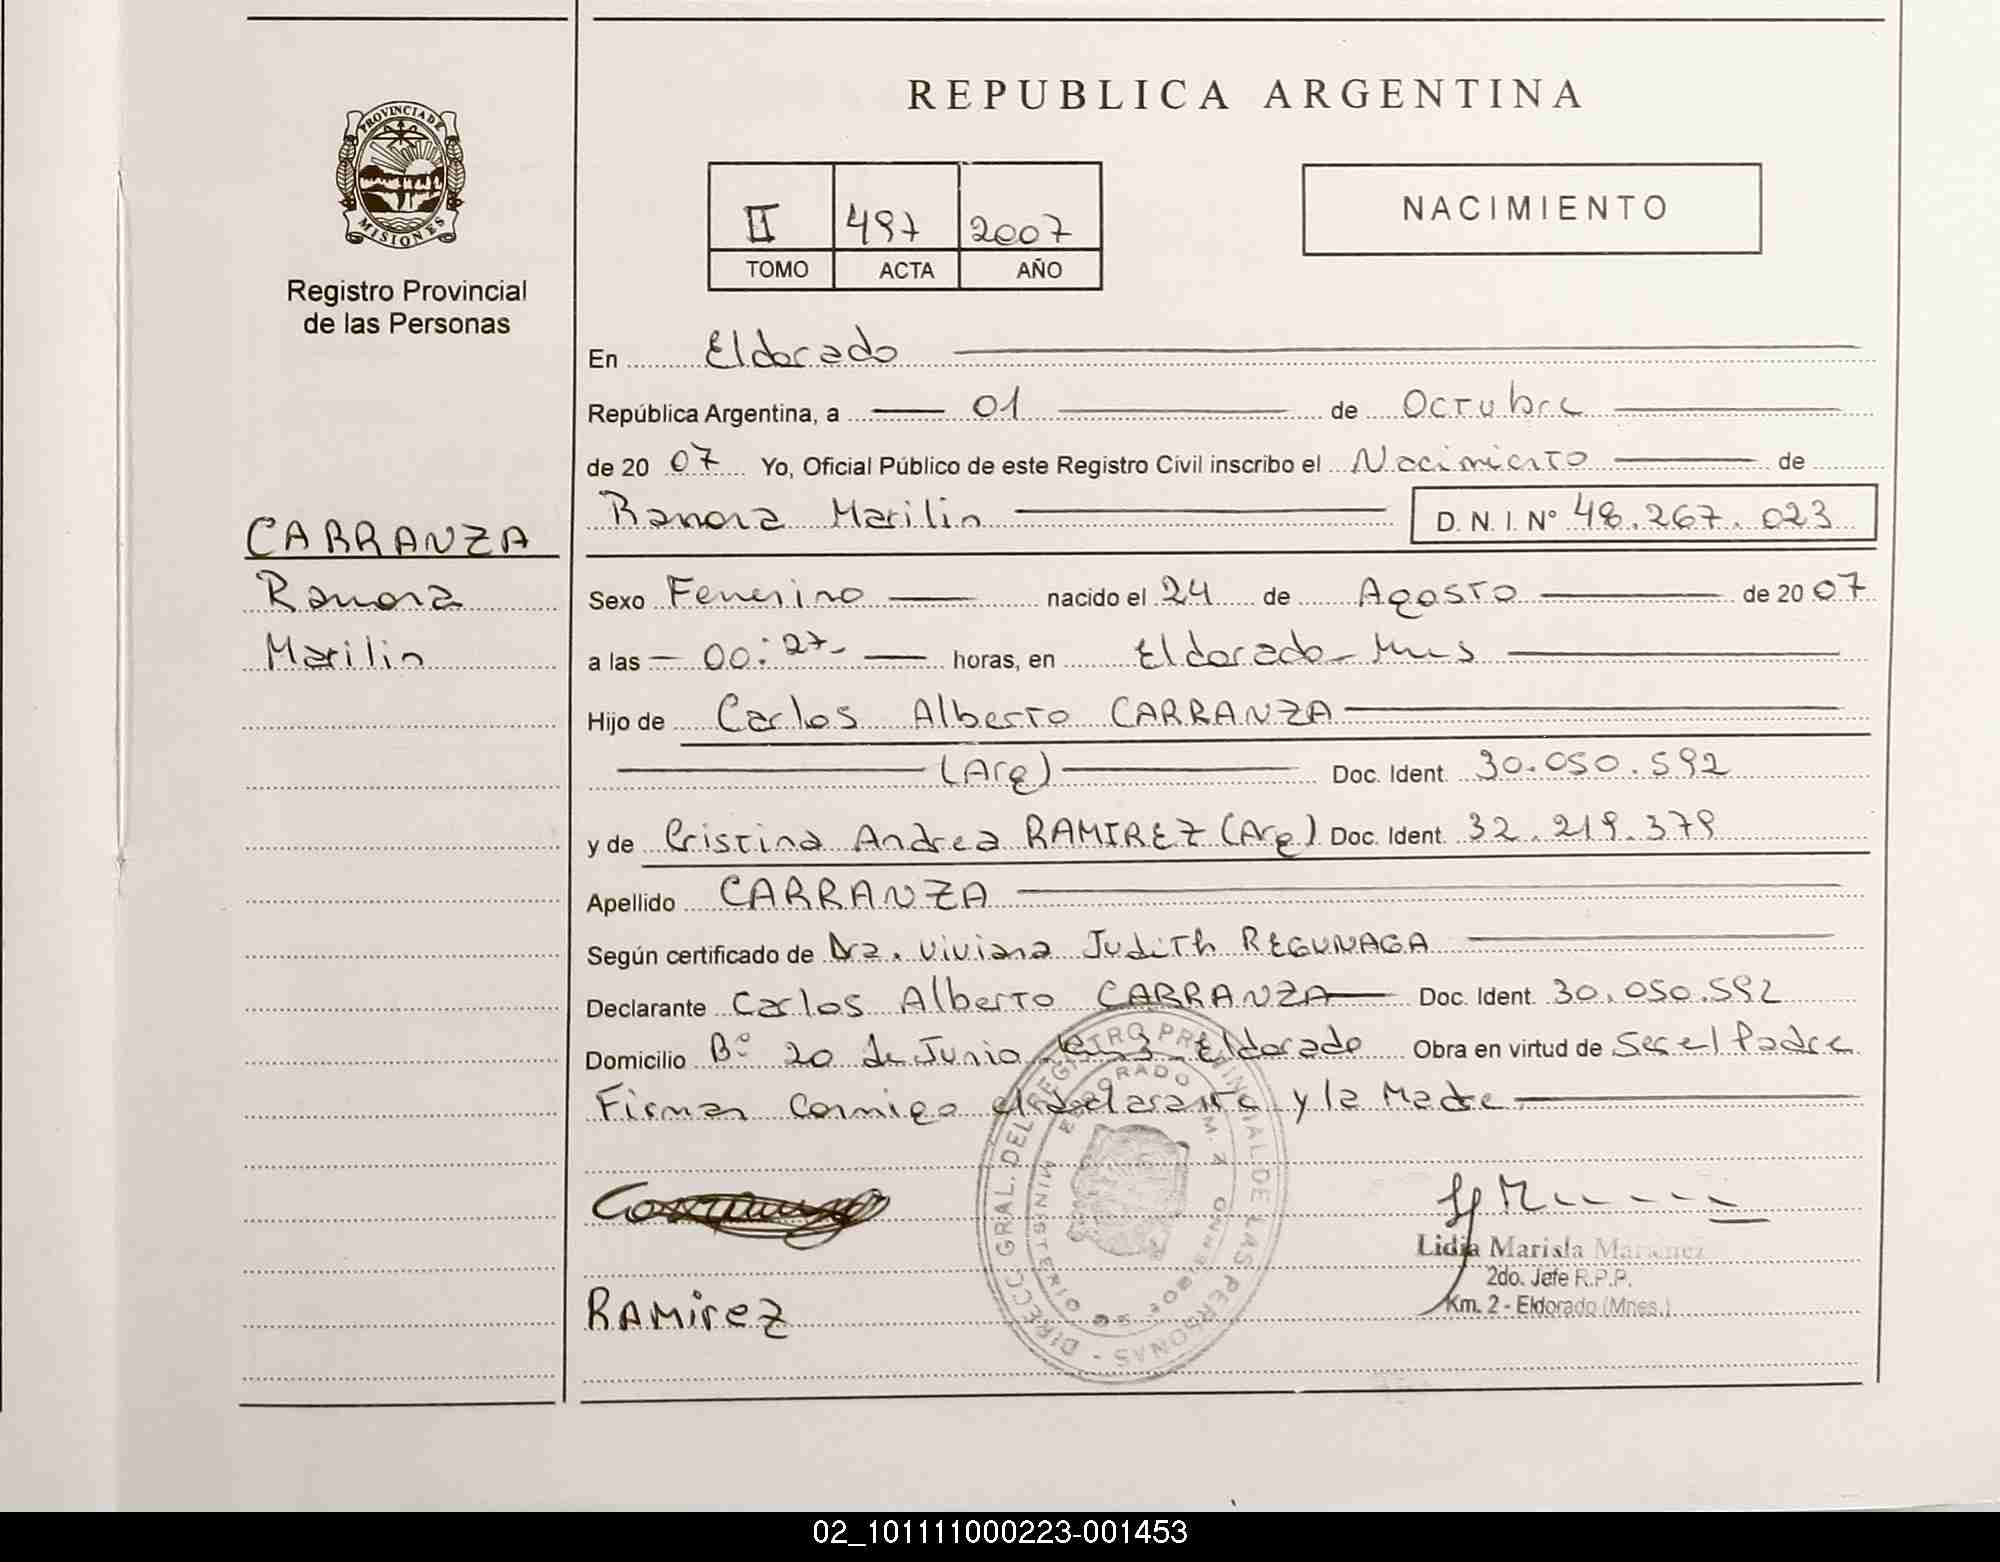 REPUBLICA ARGENTINA
PROVINCIA DE
MISIONES
Registro Provincial
de las Personas
II 497 2007
TOMO ACTA AÑO
NACIMIENTO
En Eldorado
República Argentina, a 01 de Octubre
de 20 07 Yo, Oficial Público de este Registro Civil inscribo el Nacimiento de
Ramona Marilin D. N. I. Nº 48.267.023
CARRANZA
Ramona
Marilin
Sexo Femenino nacido el 24 de Agosto de 20 07
a las 00:27 horas, en Eldorado - Mnes
Hijo de Carlos Alberto CARRANZA
(Arg) Doc. Ident. 30.050.592
y de Cristina Andrea RAMIREZ (Arg) Doc. Ident. 32.219.379
Apellido CARRANZA
Según certificado de Dra. Viviana Judith REGUNAGA
Declarante Carlos Alberto CARRANZA Doc. Ident. 30.050.592
Domicilio Bº 20 de Junio Eldorado Obra en virtud de Ser el Padre
Firman Conmigo el declarante y la Madre
RAMirez
DIRECC. GRAL. DEL REGISTRO PROVINCIAL DE LAS PERSONAS
MINISTERIO DE GOBIERNO
ELDORADO
Lidia Marisla
2do. Jefe R.P.P.
Km. 2 - Eldorado (Mnes.)
02_101111000223-001453